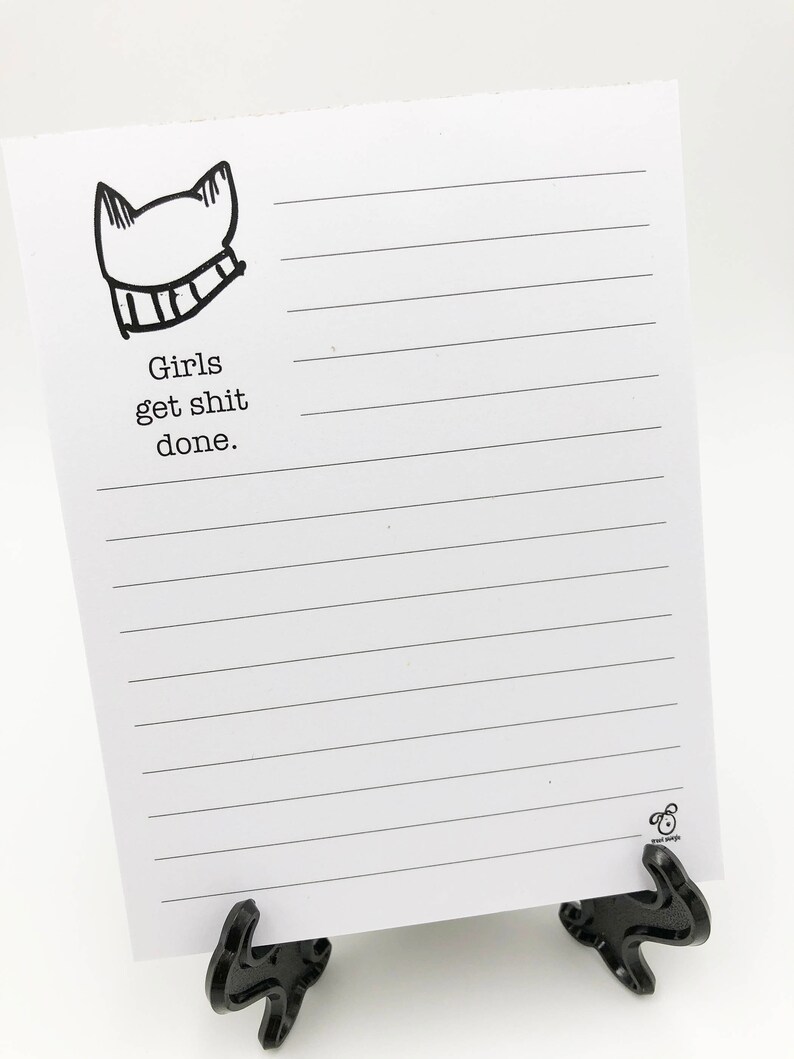 Girls
get shit
done.